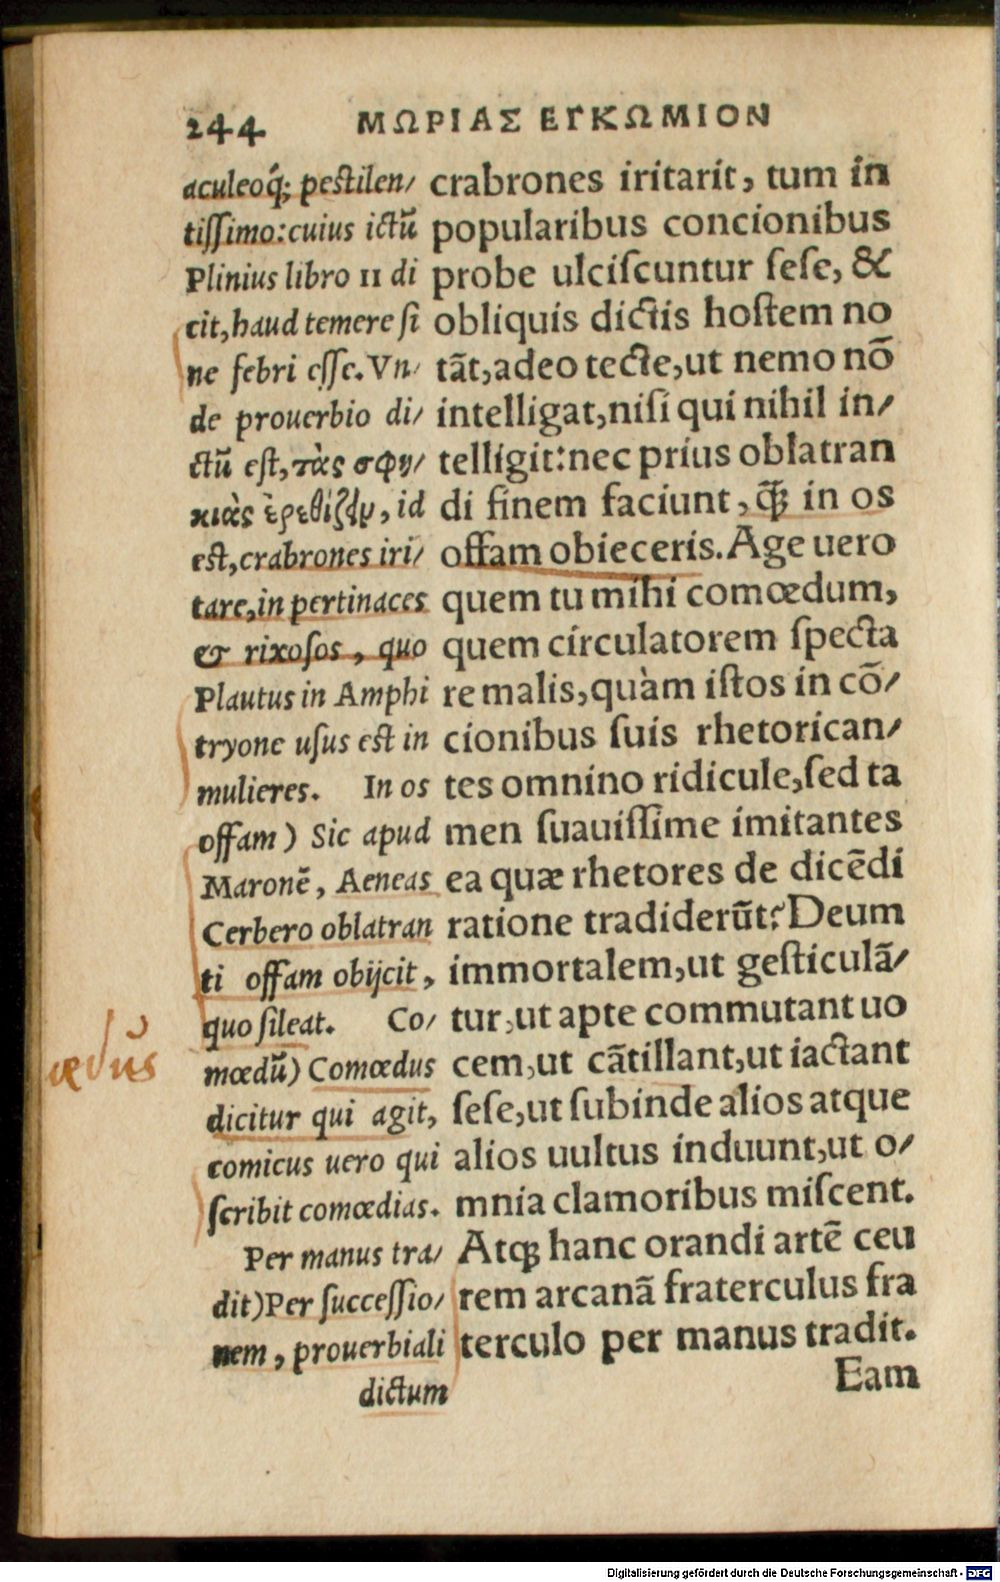 244 ΜΩΡΙΑΣ ΕΓΚΩΜΙΟΝ
aculeoq́; pestilen/
tissimo:cuius ictū
Plinius libro 11 di
cit,haud temere si
ne febri esse. Vn/
de prouerbio di/
ctū est, τὰς σφη/
κιὰς ἐρεθίζειν, id
est,crabrones iri/
tare,in pertinaces
& rixosos, quo
Plautus in Amphi
tryone usus est in
mulieres. In os
offam) Sic apud
Maronē, Aeneas
Cerbero oblatran
ti offam obijcit,
quo sileat. Co/
mœdū) Comœdus
dicitur qui agit,
comicus uero qui
scribit comœdias.
Per manus tra/
dit)Per successio/
nem, prouerbiali
dictum
crabrones iritarit, tum in
popularibus concionibus
probe ulciscuntur sese, &
obliquis dictis hostem no
tāt,adeo tecte,ut nemo nō
intelligat,nisi qui nihil in/
telligit:nec prius oblatran
di finem faciunt, q̄ꝫ in os
offam obieceris. Age uero
quem tu mihi comœdum,
quem circulatorem specta
re malis,quàm istos in cō/
cionibus suis rhetorican/
tes omnino ridicule,sed ta
men suauissime imitantes
ea quæ rhetores de dicēdi
ratione tradiderūt? Deum
immortalem,ut gesticulā/
tur,ut apte commutant uo
cem,ut cātillant,ut iactant
sese,ut subinde alios atque
alios uultus induunt,ut o/
mnia clamoribus miscent.
Atqꝫ hanc orandi artē ceu
rem arcanā fraterculus fra
terculo per manus tradit.
Eam
Digitalisierung gefördert durch die Deutsche Forschungsgemeinschaft - DFG